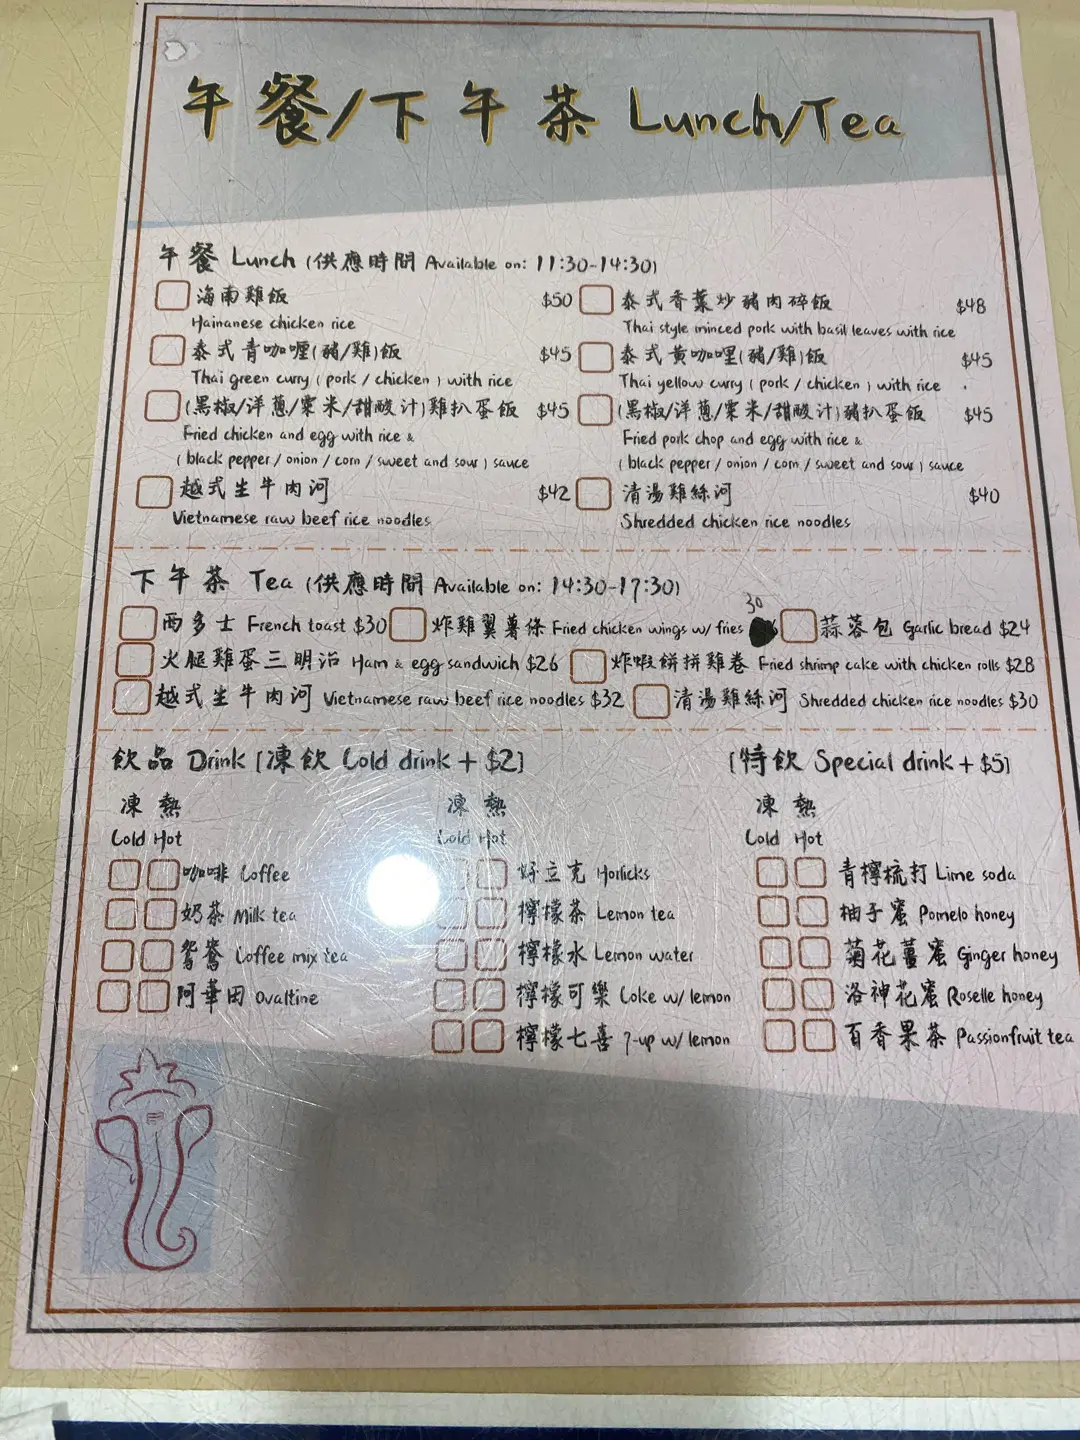 午餐/下午茶 Lunch/Tea
午餐 Lunch (供應時間 Available on: 11:30-14:30)
海南雞飯 $50
Hainanese chicken rice
泰式香葉炒豬肉碎飯 $48
Thai style minced pork with basil leaves with rice
泰式青咖喱(豬/雞)飯 $45
Thai green curry (pork / chicken) with rice
泰式黃咖喱(豬/雞)飯 $45
Thai yellow curry (pork / chicken) with rice
(黑椒/洋蔥/粟米/甜酸汁)雞扒蛋飯 $45
Fried chicken and egg with rice &
(black pepper / onion / corn / sweet and sour) sauce
(黑椒/洋蔥/粟米/甜酸汁)豬扒蛋飯 $45
Fried pork chop and egg with rice &
(black pepper / onion / corn / sweet and sour) sauce
越式生牛肉河 $42
Vietnamese raw beef rice noodles
清湯雞絲河 $40
Shredded chicken rice noodles
下午茶 Tea (供應時間 Available on: 14:30-17:30)
西多士 French toast $30
炸雞翼薯條 Fried chicken wings w/ fries 30
蒜蓉包 Garlic bread $24
火腿雞蛋三明治 Ham & egg sandwich $26
炸蝦餅拼雞卷 Fried shrimp cake with chicken rolls $28
越式生牛肉河 Vietnamese raw beef rice noodles $32
清湯雞絲河 Shredded chicken rice noodles $30
飲品 Drink [凍飲 Cold drink + $2]
凍 熱
Cold Hot
咖啡 Coffee
奶茶 Milk tea
鴛鴦 Coffee mix tea
阿華田 Ovaltine
凍 熱
Cold Hot
好立克 Horlicks
檸檬茶 Lemon tea
檸檬水 Lemon water
檸檬可樂 Coke w/ lemon
檸檬七喜 7-up w/ lemon
[特飲 Special drink + $5]
凍 熱
Cold Hot
青檸梳打 Lime soda
柚子蜜 Pomelo honey
菊花薑蜜 Ginger honey
洛神花蜜 Roselle honey
百香果茶 Passionfruit tea